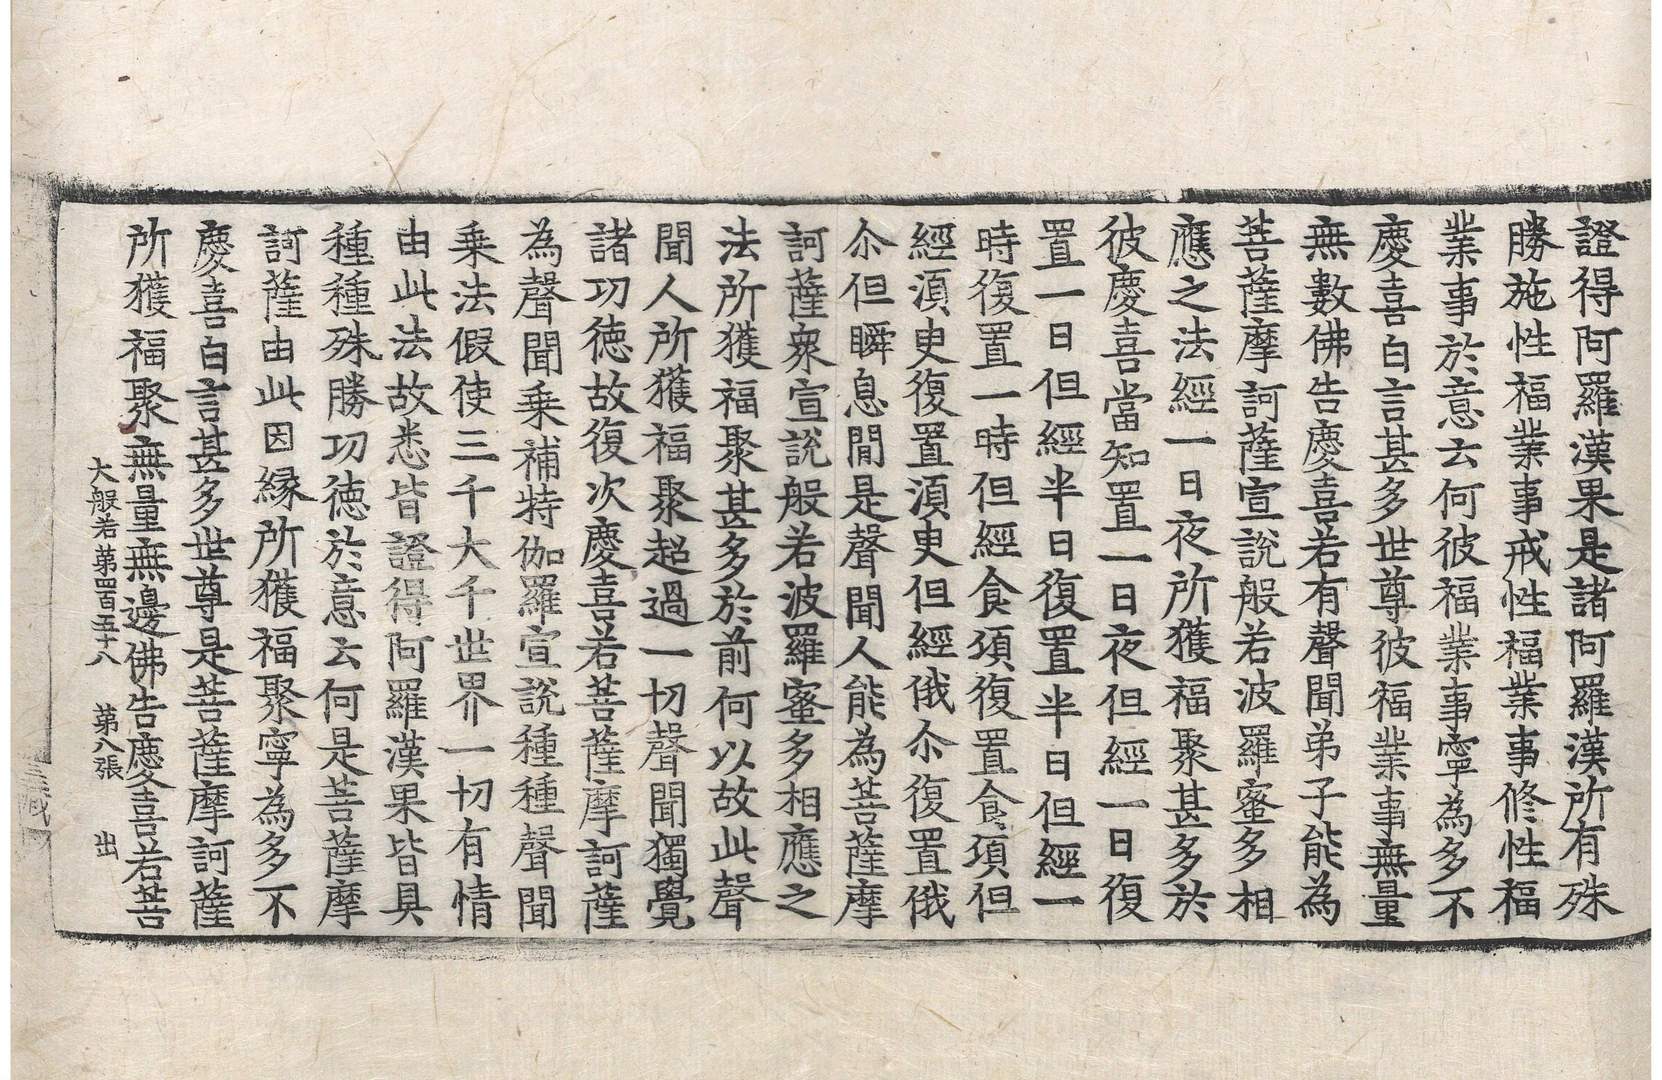 證得阿羅漢果是諸阿羅漢所有殊
勝施性福業事戒性福業事修性福
業事於意云何彼福業事寧為多不
慶喜白言甚多世尊彼福業事無量
無數佛告慶喜若有聲聞弟子能為
菩薩摩訶薩宣說般若波羅蜜多相
應之法經一日夜所獲福聚甚多於
彼慶喜當知置一日夜但經一日復
置一日但經半日復置半日但經一
時復置一時但經食頃復置食頃但
經須臾復置須臾但經俄尒復置俄
尒但瞬息閒是聲聞人能為菩薩摩
訶薩衆宣說般若波羅蜜多相應之
法所獲福聚甚多於前何以故此聲
聞人所獲福聚超過一切聲聞獨覺
諸功德故復次慶喜若菩薩摩訶薩
為聲聞乘補特伽羅宣說種種聲聞
乘法假使三千大千世界一切有情
由此法故悉皆證得阿羅漢果皆具
種種殊勝功德於意云何是菩薩摩
訶薩由此因緣所獲福聚寧為多不
慶喜白言甚多世尊是菩薩摩訶薩
所獲福聚無量無邊佛告慶喜若菩
大般若第四百五十八 第八張 出